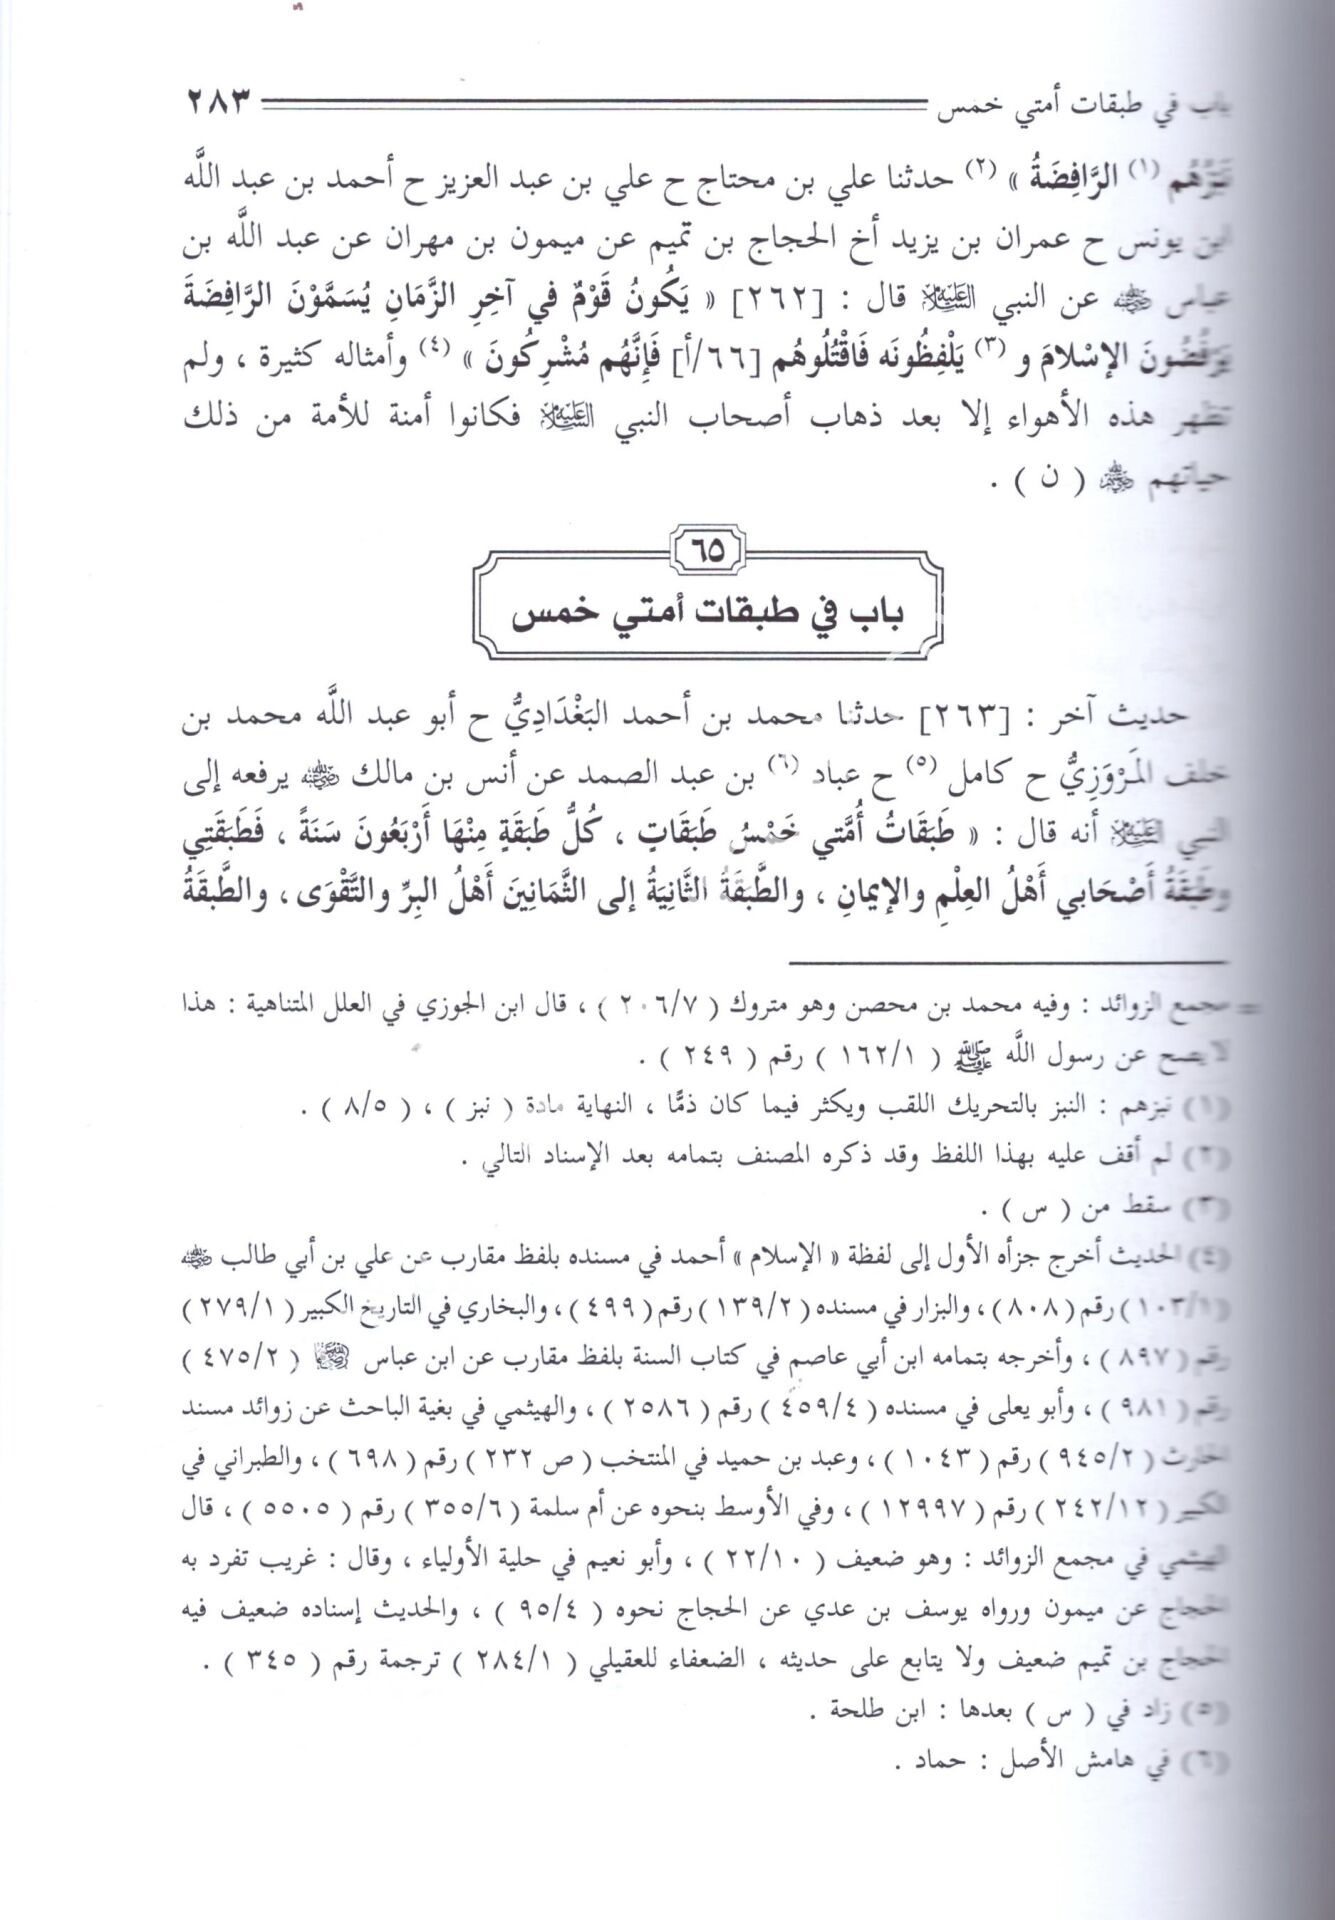 باب في طبقات أمتي خمس ٢٨٣
نَبَزُهُم (١) الرَّافِضَةُ » (٢) حدثنا علي بن محتاج ح علي بن عبد العزيز ح أحمد بن عبد اللَّه
ابن يونس ح عمران بن يزيد أخ الحجاج بن تميم عن ميمون بن مهران عن عبد اللَّه بن
عباس ﵁ عن النبي ﵇ قال : [٢٦٢] « يَكُونُ قَوْمٌ في آخِرِ الزَّمَانِ يُسَمَّوْنَ الرَّافِضَةَ
يَرْفُضُونَ الإسْلامَ و (٣) يَلْفِظُونَه فَاقْتُلُوهُم [٦٦/أ] فَإِنَّهُم مُشْرِكُونَ » (٤) وأمثاله كثيرة ، ولم
تظهر هذه الأهواء إلا بعد ذهاب أصحاب النبي ﵇ فكانوا أمنة للأمة من ذلك
حياتهم ﵃ ( ن ) .
٦٥
باب في طبقات أمتي خمس
حديث آخر : [٢٦٣] حدثنا محمد بن أحمد البَغْدَادِيُّ ح أبو عبد اللَّه محمد بن
خلف المَرْوَزِيُّ ح كامل (٥) ح عباد (٦) بن عبد الصمد عن أنس بن مالك ﵁ يرفعه إلى
النبي ﵇ أنه قال : « طَبَقَاتُ أُمَّتي خَمْسُ طَبَقَاتٍ ، كُلُّ طَبَقَةٍ مِنْهَا أَرْبَعُونَ سَنَةً ، فَطَبَقَتِي
وطَبَقَةُ أَصْحَابي أَهْلُ العِلْمِ والإيمَانِ ، والطَّبَقَةُ الثَّانِيَةُ إلى الثَّمَانِينَ أَهْلُ البِرِّ والتَّقْوَى ، والطَّبقَةُ
= مجمع الزوائد : وفيه محمد بن محصن وهو متروك ( ٢٠٦/٧ ) ، قال ابن الجوزي في العلل المتناهية : هذا
لا يصح عن رسول اللَّه ﷺ ( ١٦٢/١ ) رقم ( ٢٤٩ ) .
(١) نبزهم : النبز بالتحريك اللقب ويكثر فيما كان ذمًّا ، النهاية مادة ( نبز ) ، ( ٨/٥ ) .
(٢) لم أقف عليه بهذا اللفظ وقد ذكره المصنف بتمامه بعد الإسناد التالي .
(٣) سقط من ( س ) .
(٤) الحديث أخرج جزأه الأول إلى لفظة « الإسلام » أحمد في مسنده بلفظ مقارب عن علي بن أبي طالب ﵁
(١٠٣/١) رقم (٨٠٨) ، والبزار في مسنده (١٣٩/٢) رقم (٤٩٩) ، والبخاري في التاريخ الكبير (٢٧٩/١)
رقم ( ٨٩٧ ) ، وأخرجه بتمامه ابن أبي عاصم في كتاب السنة بلفظ مقارب عن ابن عباس ﵄ ( ٤٧٥/٢ )
رقم ( ٩٨١ ) ، وأبو يعلى في مسنده ( ٤٥٩/٤ ) رقم ( ٢٥٨٦ ) ، والهيثمي في بغية الباحث عن زوائد مسند
الحارث ( ٩٤٥/٢ ) رقم ( ١٠٤٣ ) ، وعبد بن حميد في المنتخب ( ص ٢٣٢ ) رقم ( ٦٩٨ ) ، والطبراني في
الكبير ( ٢٤٢/١٢ ) رقم ( ١٢٩٩٧ ) ، وفي الأوسط بنحوه عن أم سلمة ( ٣٥٥/٦ ) رقم ( ٥٥٠٥ ) ، قال
الهيثمي في مجمع الزوائد : وهو ضعيف ( ٢٢/١٠ ) ، وأبو نعيم في حلية الأولياء ، وقال : غريب تفرد به
الحجاج عن ميمون ورواه يوسف بن عدي عن الحجاج نحوه ( ٩٥/٤ ) ، والحديث إسناده ضعيف فيه
الحجاج بن تميم ضعيف ولا يتابع على حديثه ، الضعفاء للعقيلي ( ٢٨٤/١ ) ترجمة رقم ( ٣٤٥ ) .
(٥) زاد في ( س ) بعدها : ابن طلحة .
(٦) في هامش الأصل : حماد .